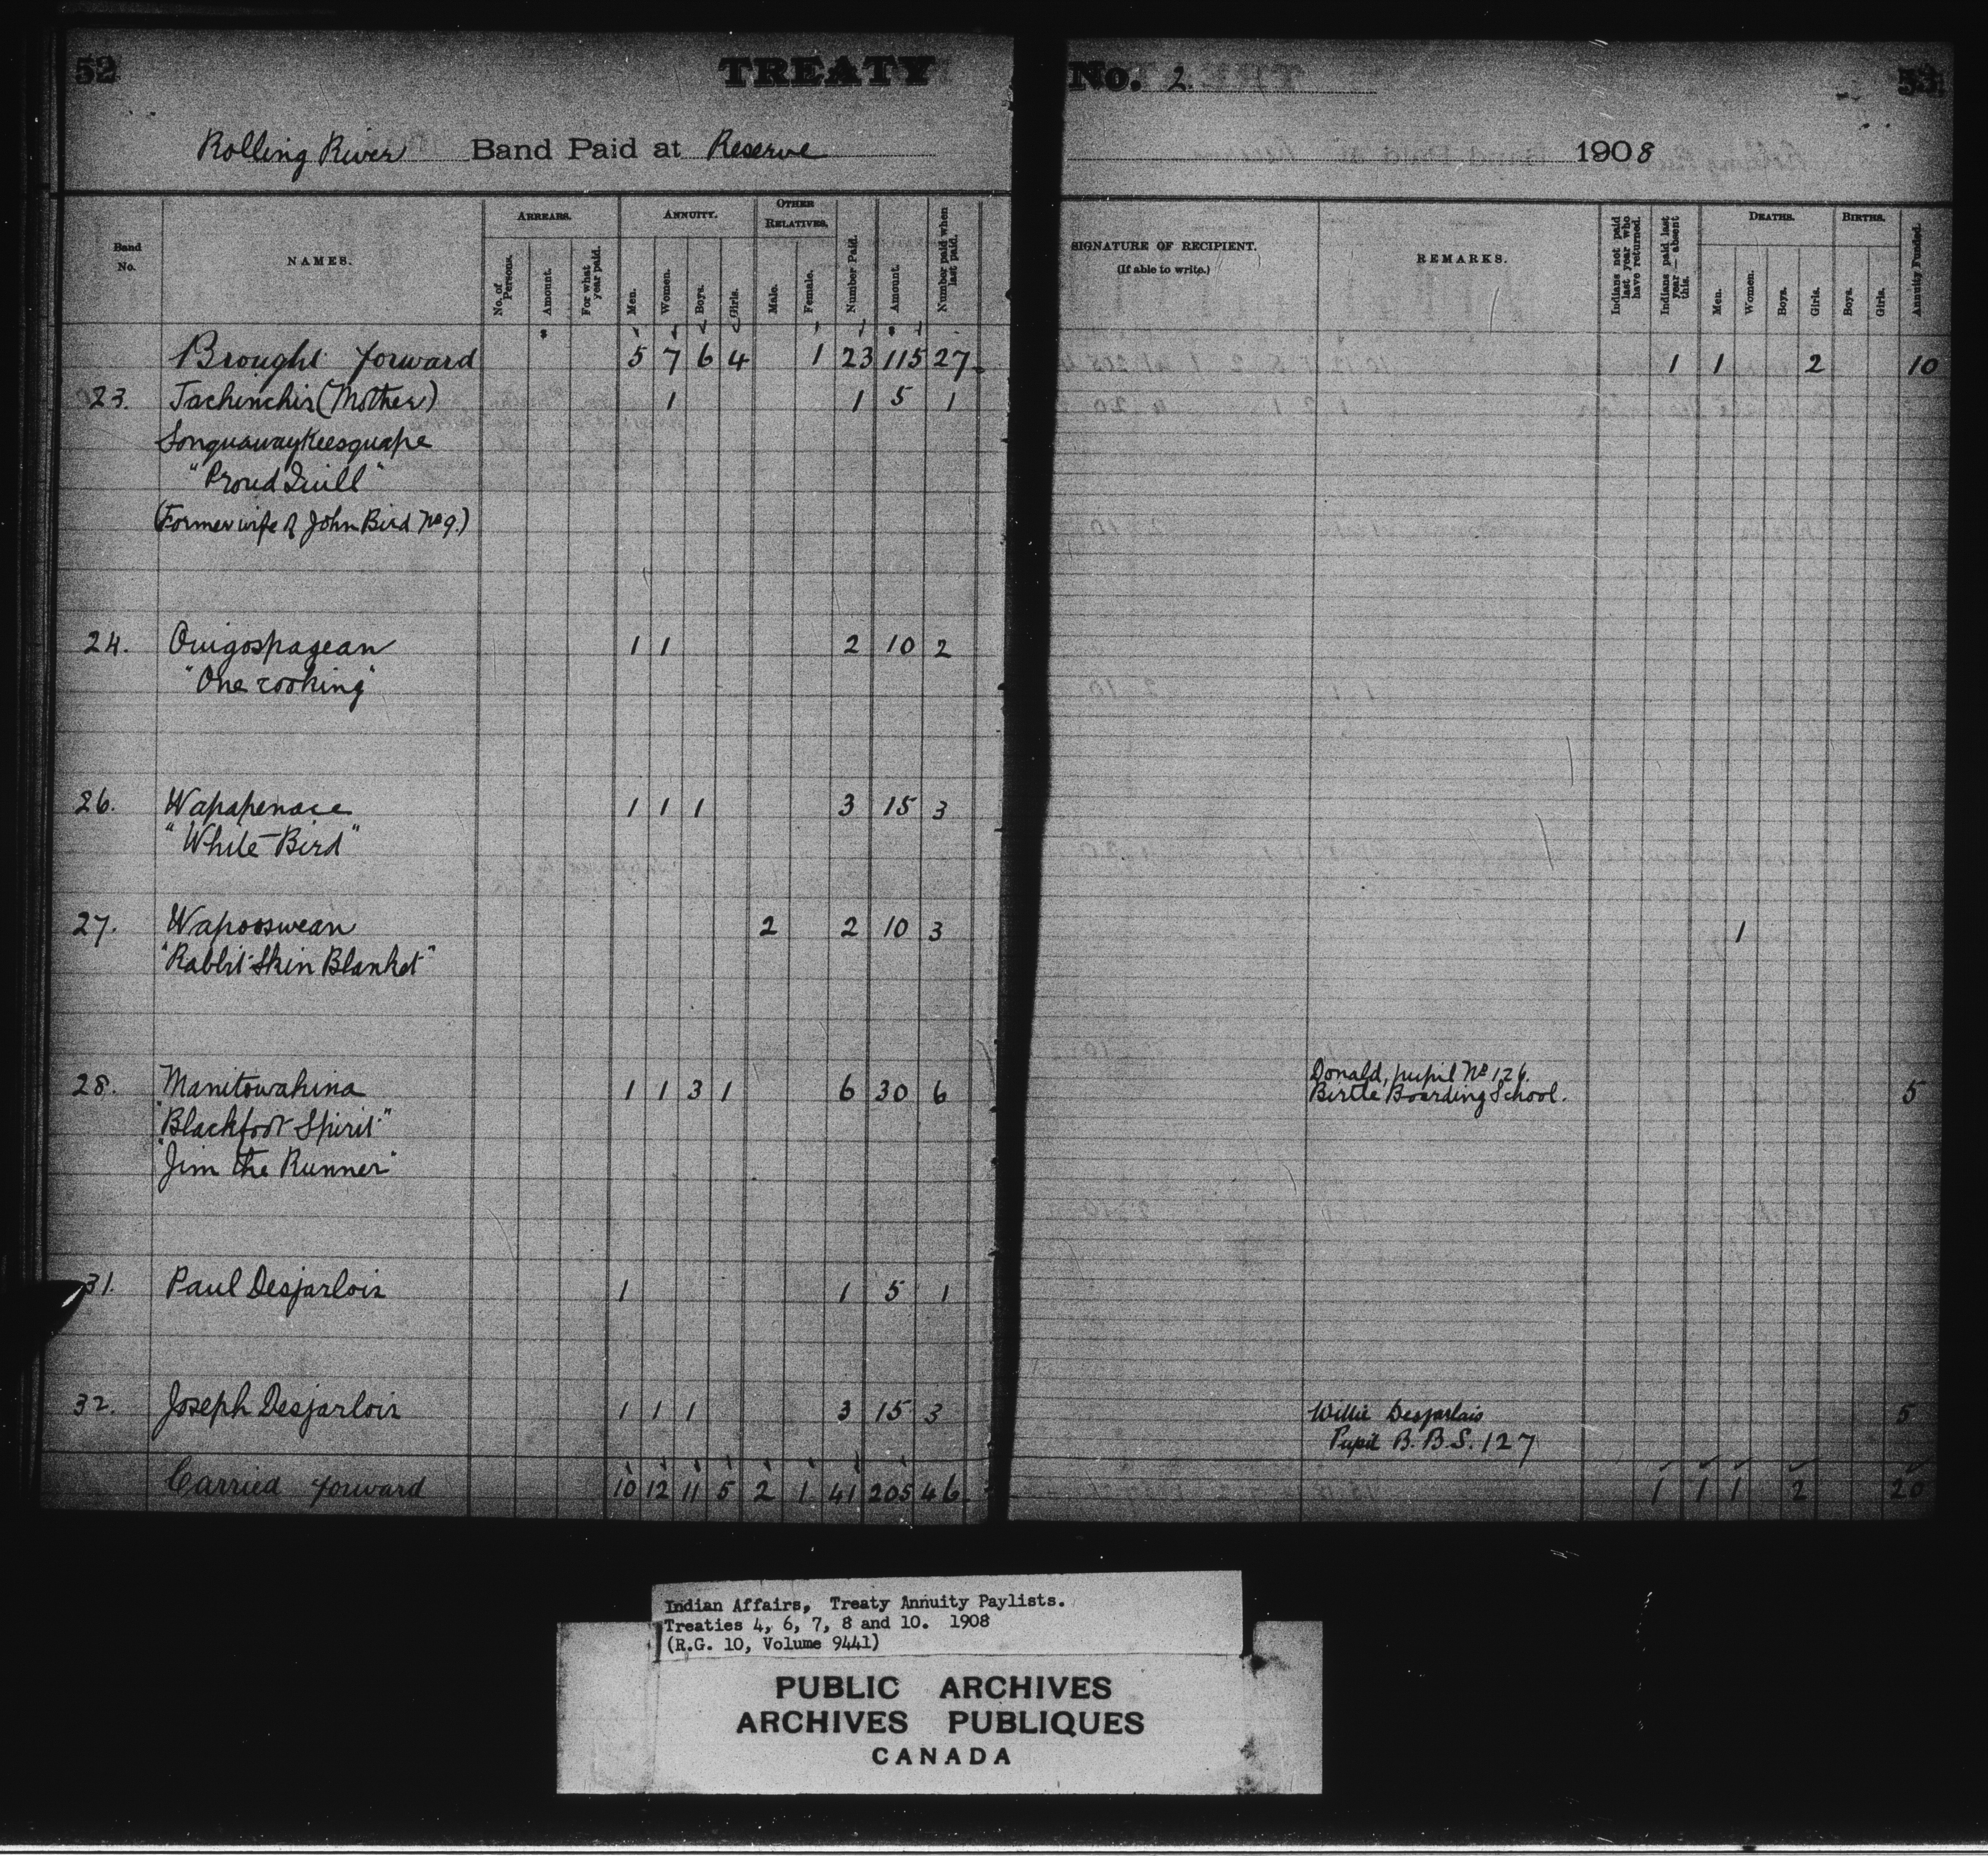 52 TREATY No. 2. 53
Rolling River Band Paid at Reserve 1908
Band No.
NAMES.
ARREARS.
No. of Persons.
Amount.
For what year paid.
ANNUITY.
Men.
Women.
Boys.
Girls.
OTHER RELATIVES.
Male.
Female.
Number Paid.
Amount.
Number paid when last paid.
SIGNATURE OF RECIPIENT.
(If able to write.)
REMARKS.
Indians not paid last year who have returned.
Indians paid last year—absent this.
DEATHS.
Men.
Women.
Boys.
Girls.
BIRTHS.
Boys.
Girls.
Annuity Funded.
Brought forward 5 7 6 4 1 23 115 27 1 1 2 10
23. Tachinchis (Mother) 1 1 5 1
Sonquawaykeesquape
"Proud Quill"
(Former wife of John Bird No 9.)
24. Ouigospagean 1 1 2 10 2
"One cooking"
26. Wapapenace 1 1 1 3 15 3
"White Bird"
27. Wapooswean 2 2 10 3 1
"Rabbit Skin Blanket"
28. Manitowahina 1 1 3 1 6 30 6 Donald, pupil No 126. 5
Birtle Boarding School.
"Blackfoot Spirit"
"Jim the Runner"
31. Paul Desjarlois 1 1 5 1
32. Joseph Desjarlois 1 1 1 3 15 3 Willie Desjarlais 5
Pupil B. B. S. 127
Carried forward 10 12 11 5 2 1 41 205 46 1 1 1 2 20
Indian Affairs, Treaty Annuity Paylists.
Treaties 4, 6, 7, 8 and 10. 1908
(R.G. 10, Volume 9441)
PUBLIC ARCHIVES
ARCHIVES PUBLIQUES
CANADA